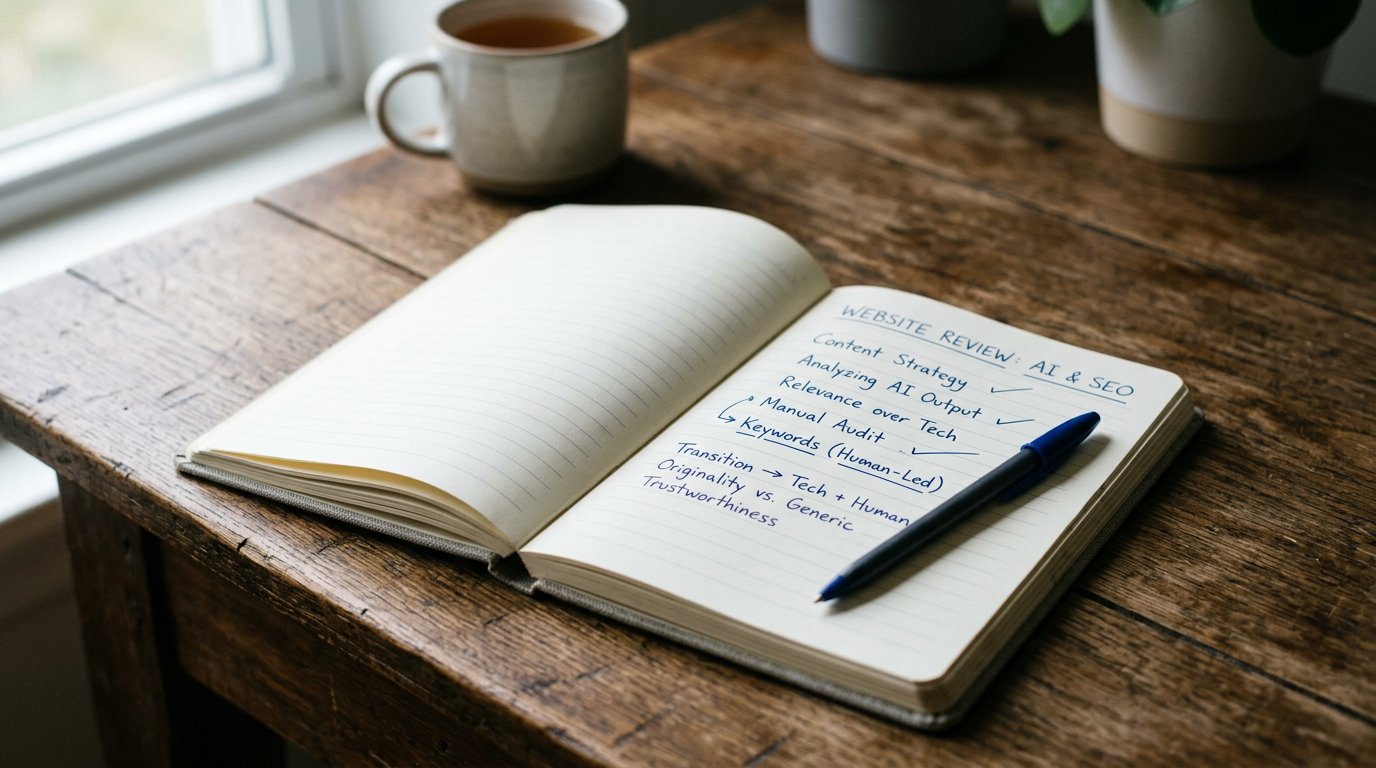 WEBSITE REVIEW: AI & SEO
Content Strategy ✓
Analyzing AI Output ✓
Relevance over Tech
• Manual Audit ✓
↳ Keywords (Human-Led)
Transition → Tech + Human
Originality vs. Generic
Trustworthiness